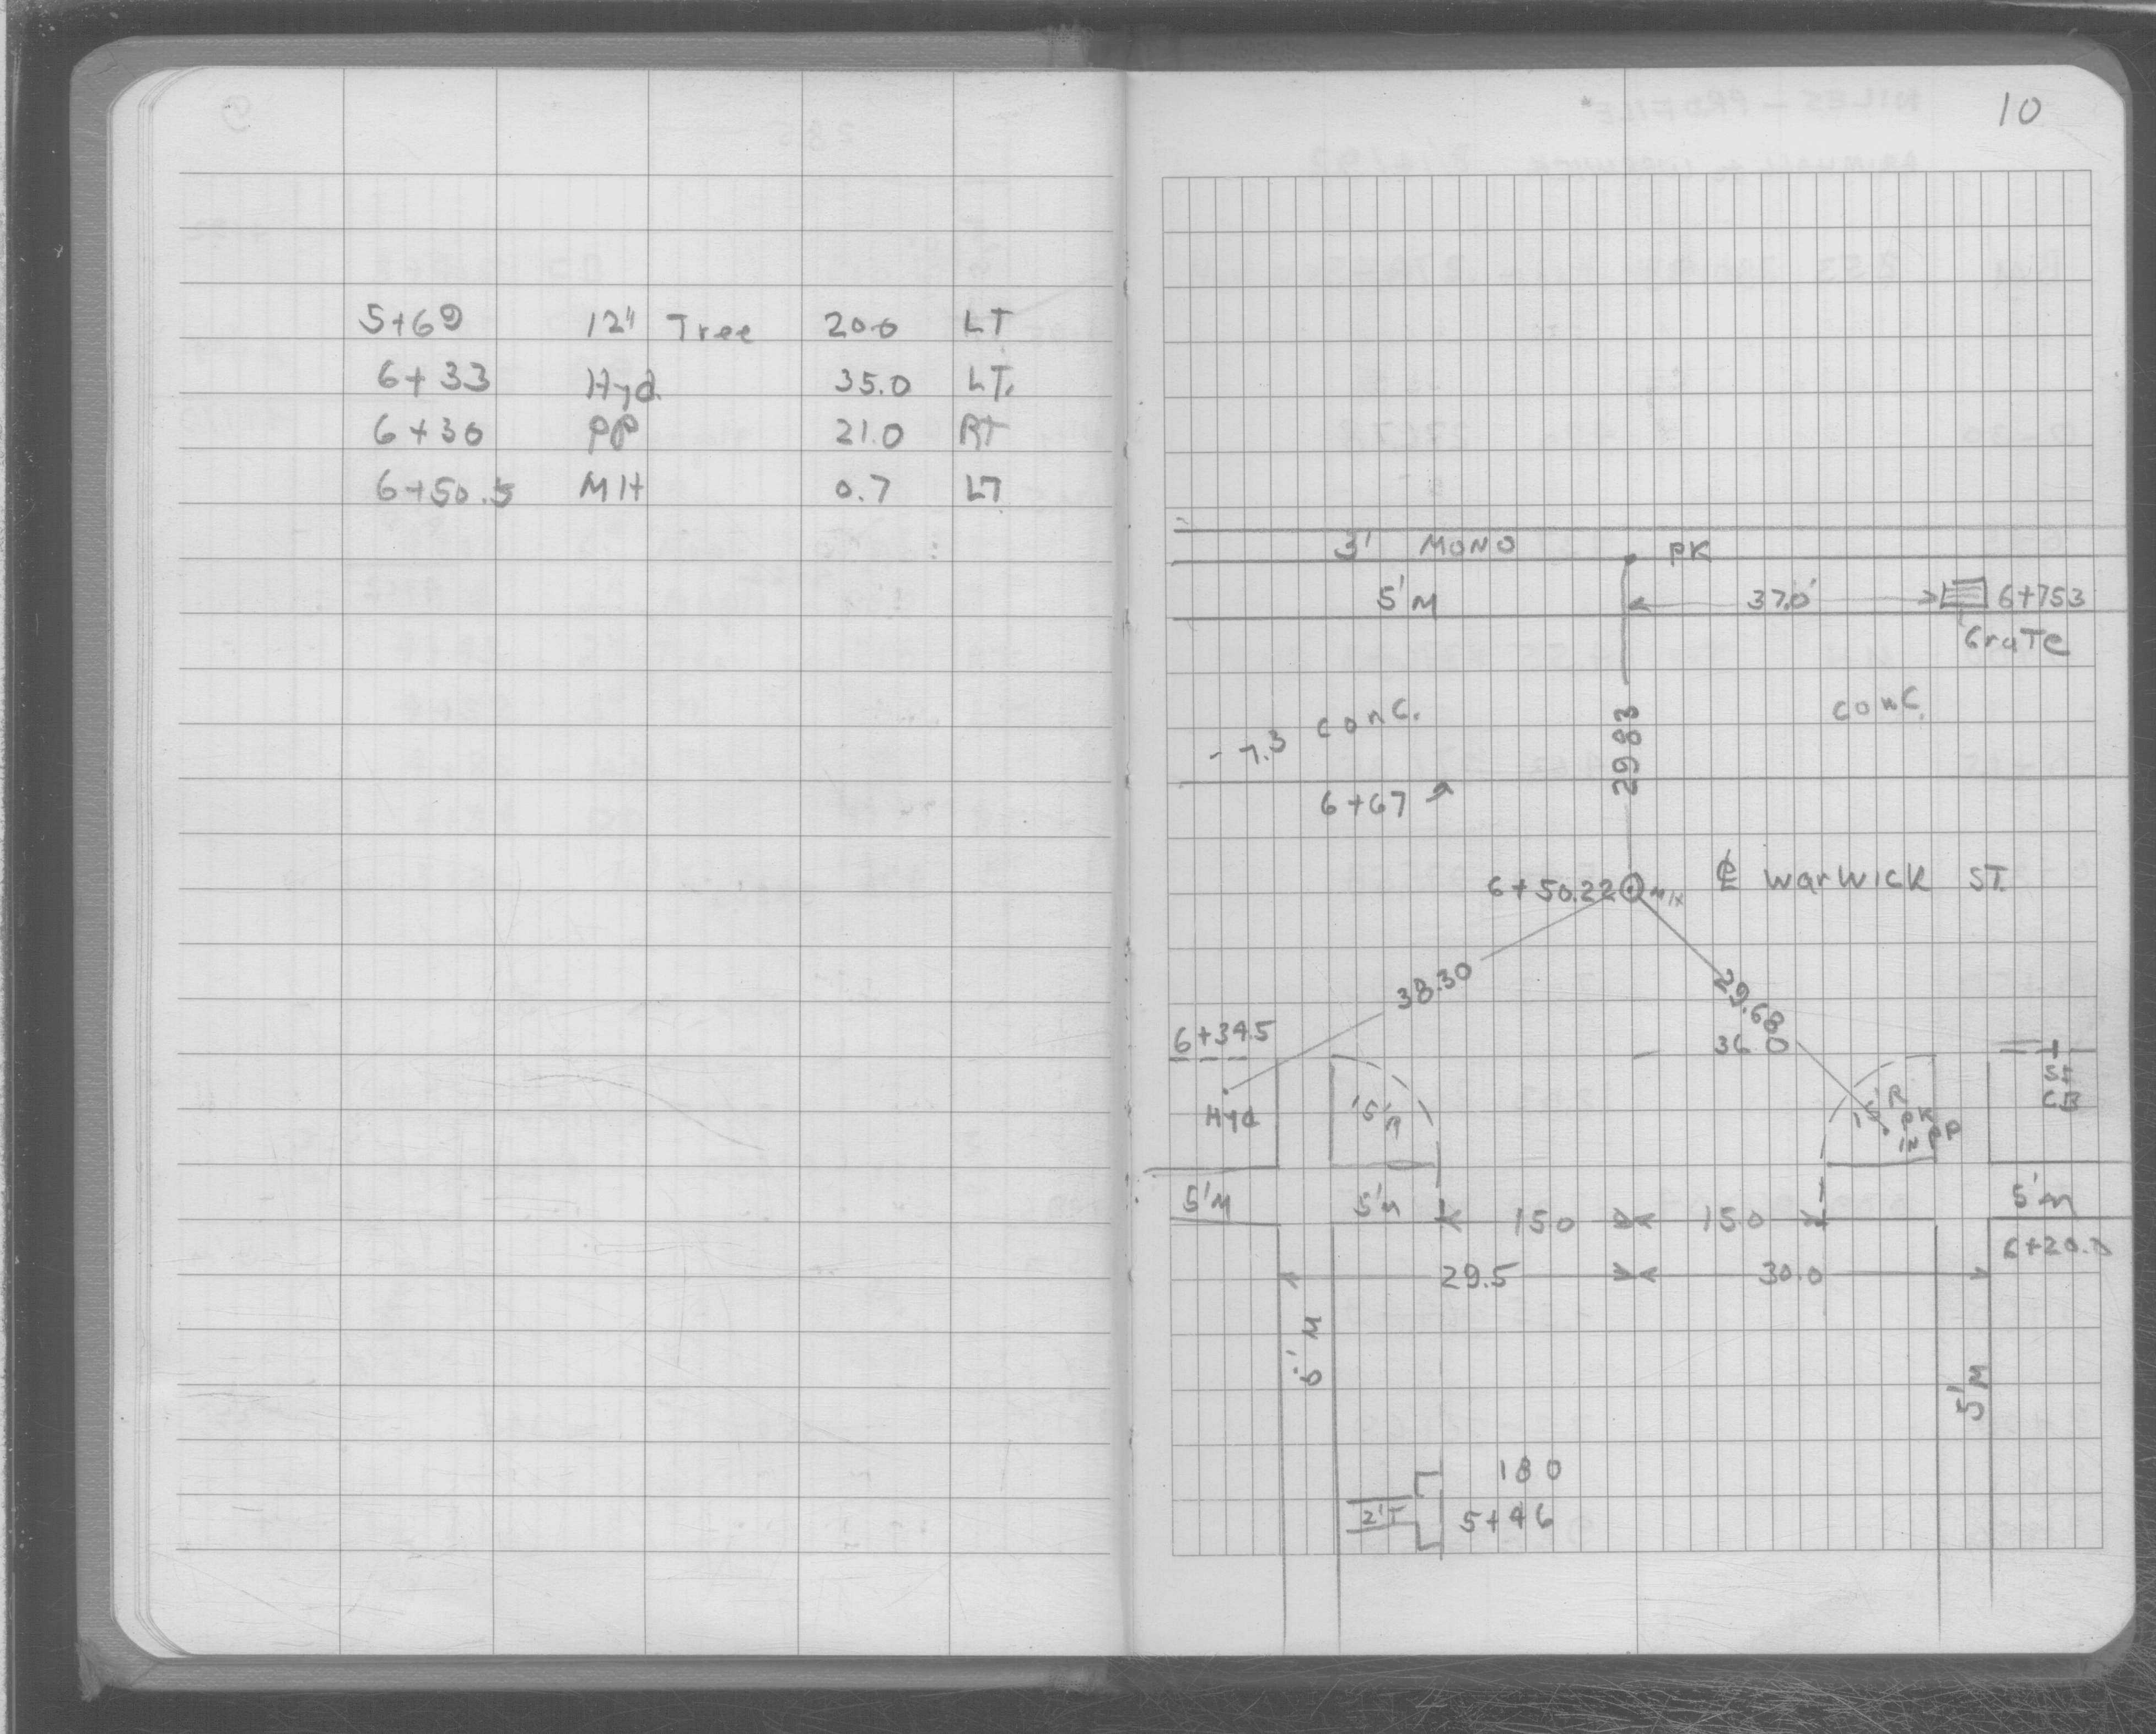 5+69 12" Tree 20.0 LT
6+33 Hyd. 35.0 LT.
6+30 PP 21.0 RT
6+50.5 MH 0.7 LT
10
3' MONO PK
5'M 37.0' 6+753
GraTe
conc. conc.
- 7.3
29.83
6+67
6+50.22 MH ℄ WarWICK ST.
38.30 29.68
6+34.5 36.0
Hyd 15'R
PK
IN PP
CB
5'M 5'M 150 150 5'M
6+20.
29.5 30.0
5'M
180
2'T 5+46